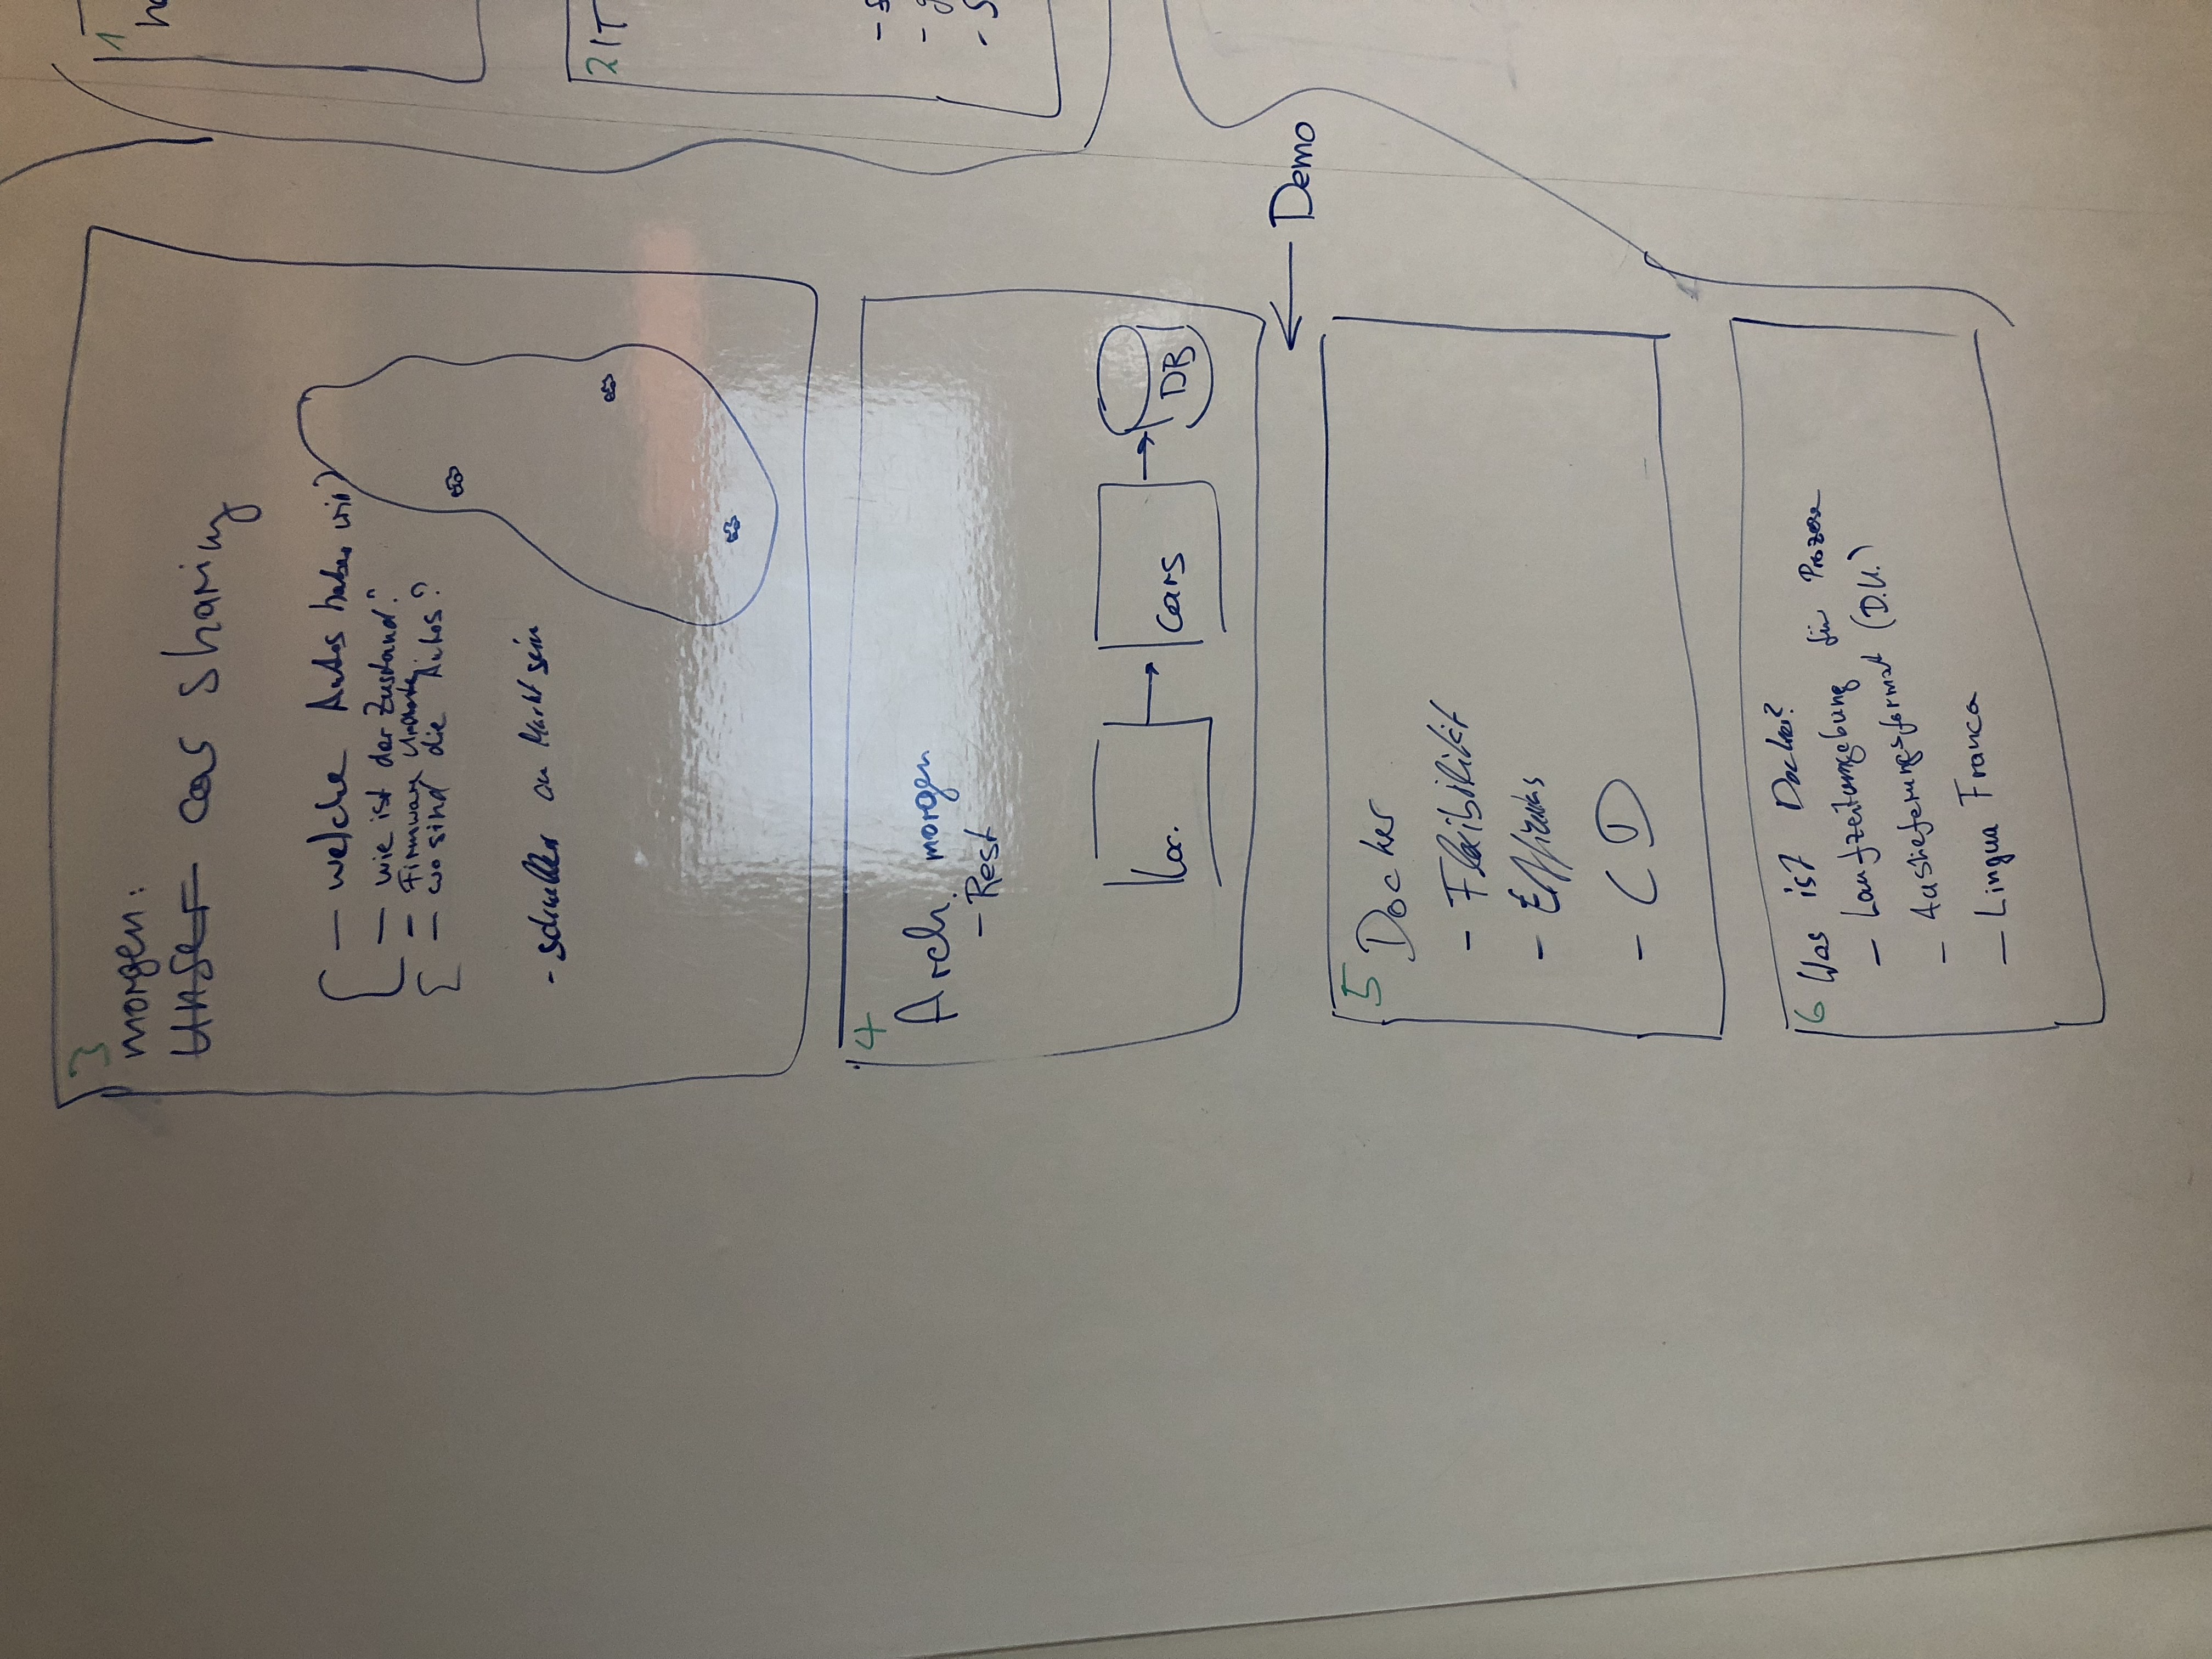 3
morgen:
Unser car sharing
- welche Autos haben wir?
- wie ist der Zustand?
- Firmware Update
- wo sind die Autos?
- schneller am Markt sein
4
Arch. morgen
- Rest
Loc.
cars
DB
Demo
5 Docker
- Flexibilität
- Effizienz
- CD
6 Was ist Docker?
- Laufzeitumgebung für Prozesse
- Auslieferungsformat (D.U.)
- Lingua Franca
1
2 IT